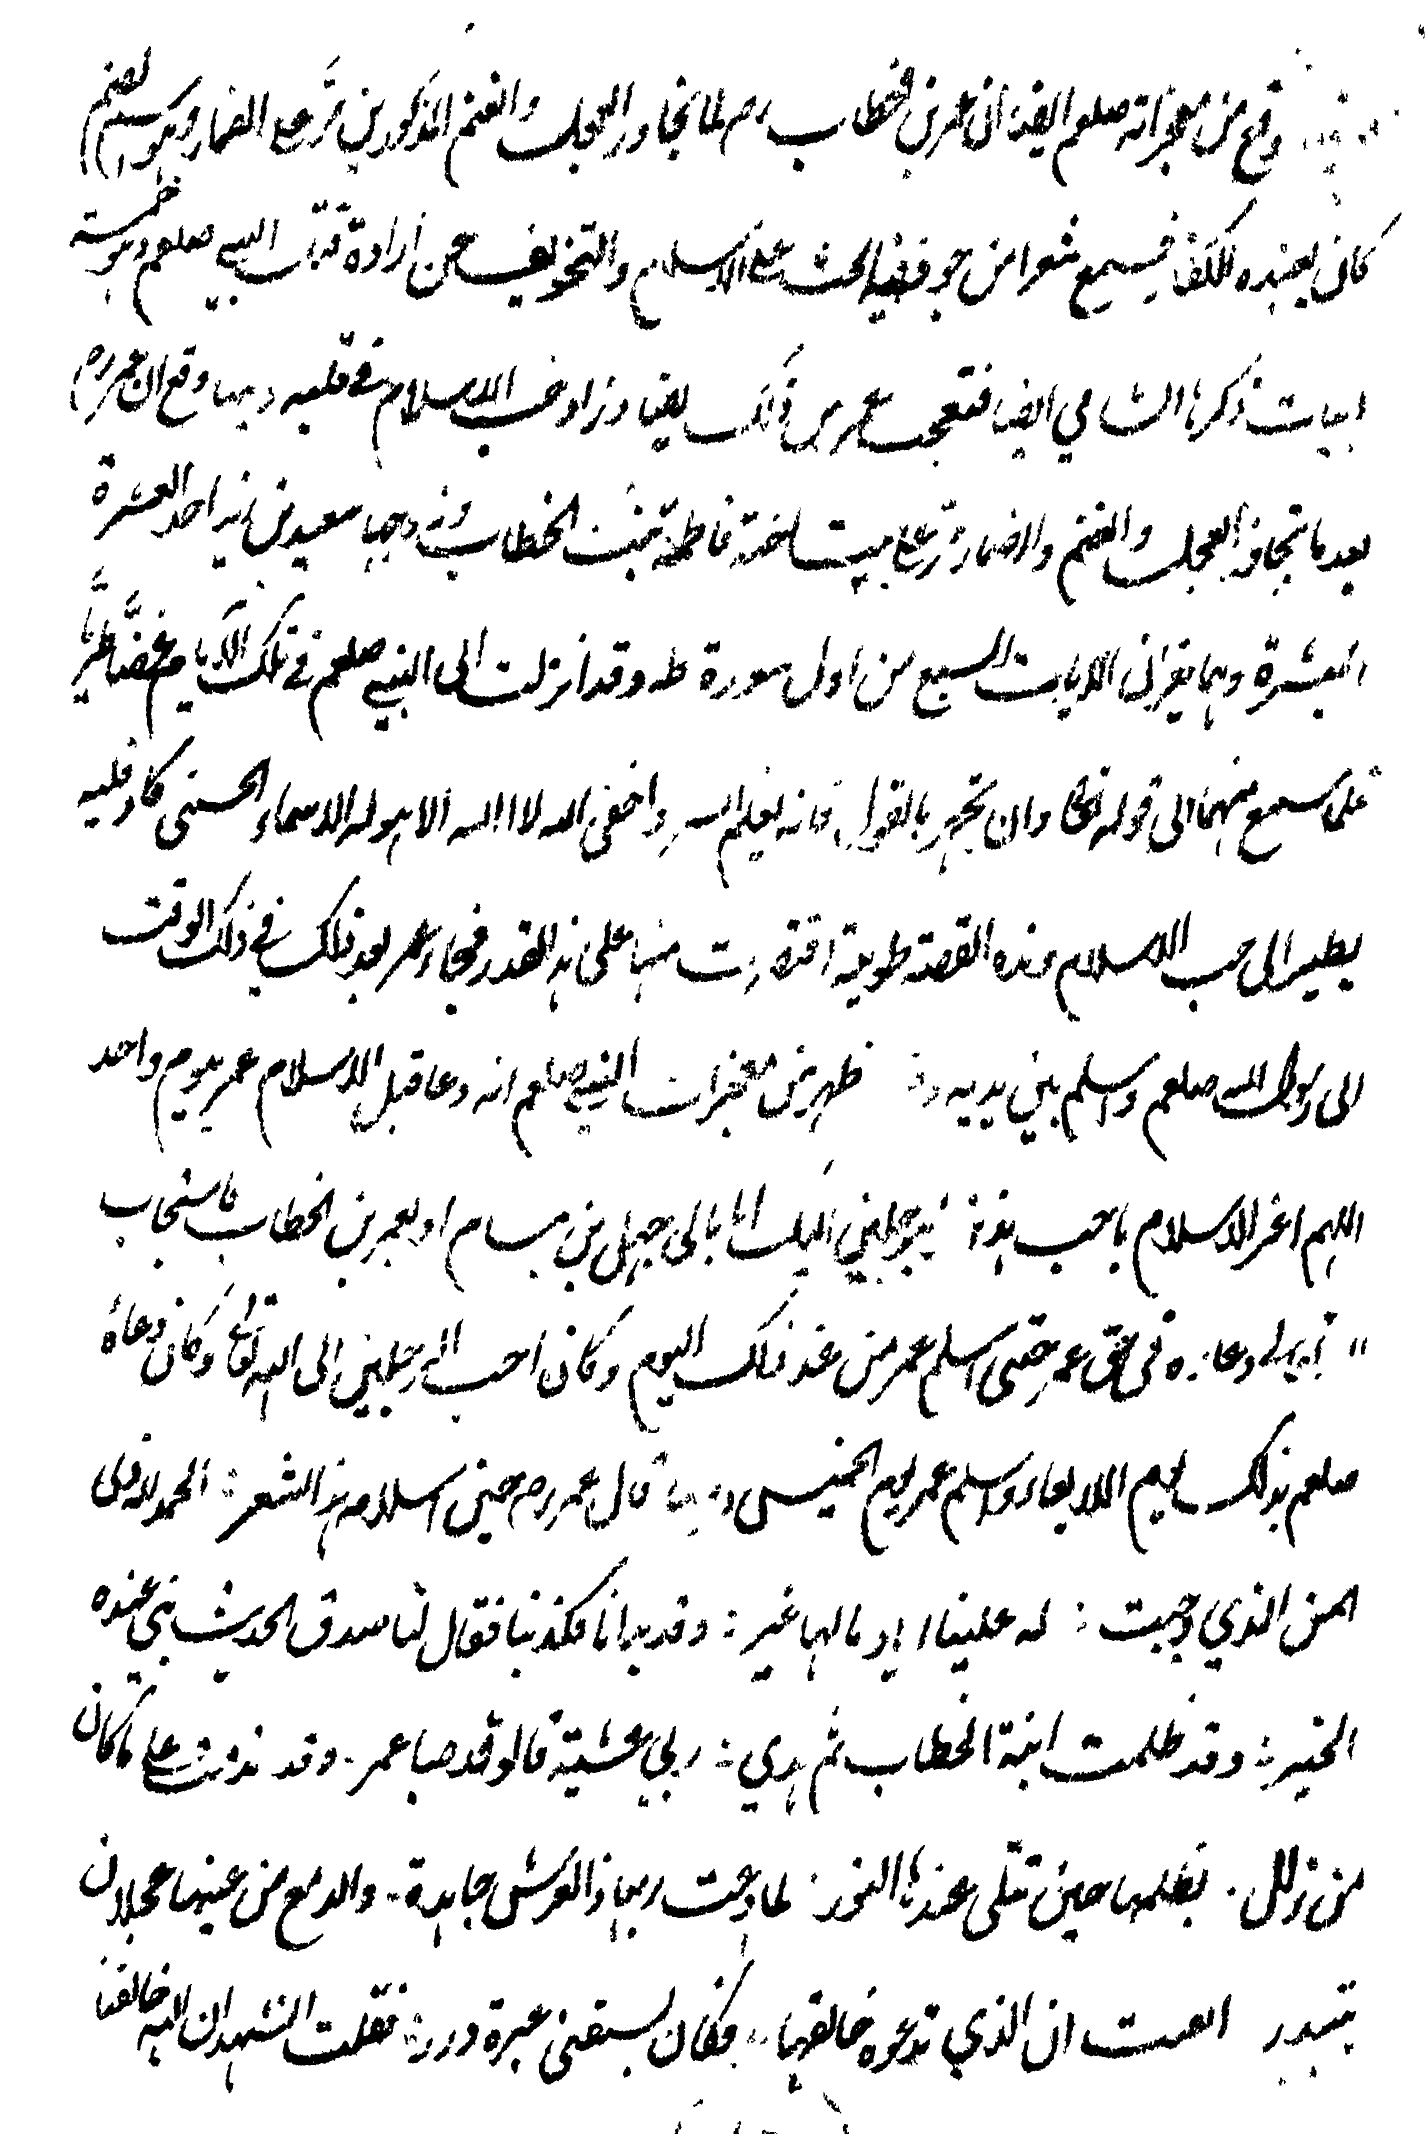 وقع من معجزاته صلعم ايضا ان عمر بن خطاب رم لما تجاوز العجل والغنم المذكورين مر على الضمار وهو اسم لصنم
كان يعبده الكفار فسمع شعرا من جوفه فيه الحث على الاسلام والتخويف عن ارادة قتل النبي صلعم وهو خمسة
ابيات ذكرها الشامي ايضا فتعجب عمر من ذلك ايضا وزاد حب الاسلام في قلبه ومنها وقع ان عمر رم
بعد ما تجاوز العجل والغنم والضمار مر على بيت اخته فاطمة بنت الخطاب وزوجها سعيد بن زيد احد العشرة
المبشرة وهما يقرآن الايات السبع من اول سورة طه وقد انزلت الى النبي صلعم في تلك الايام غضا طريا
فلما سمع منهما الى قوله تعالى وان تجهر بالقول فانه يعلم السر واخفى الله لا اله الا هو له الاسماء الحسنى كاد قلبه
يطير الى حب الاسلام وهذه القصة طويلة اقتصرت منها على هذا القدر فجاء عمر بعد ذلك في ذلك الوقت
الى رسول الله صلعم واسلم بين يديه و ظهر من معجزات النبي صلعم انه دعا قبل الاسلام عمر بيوم واحد
اللهم اعز الاسلام باحب هذين الرجلين اليك اما بابي جهل بن هشام او بعمر بن الخطاب فاستجاب
الله تعالى دعاءه في حق عمر حتى اسلم عمر من غد ذلك اليوم وكان احب الرجلين الى الله تعالى وكان دعاؤه
صلعم بذلك يوم الاربعاء واسلم عمر يوم الخميس ومنها قال عمر رم حين اسلامه هذا الشعر : الحمد لله ذي
المن الذي وجبت : له علينا اياد ما لها غير : وقد بدانا فكذبنا فقال لنا صدق الحديث نبي عنده
الخبر : وقد ظلمت ابنة الخطاب ثم هدي : ربي عشية قالوا قد صبا عمر - وقد ندمت على ما كان
من زلل . بظلمها حين تتلى عندها السور : لما دعت ربها ذا العرش جاهدة - والدمع من عينها عجلان
يبتدر ايقنت ان الذي تدعوه خالقها . فكان يسبقني عبرة درر : فقلت اشهد ان الله خالقنا